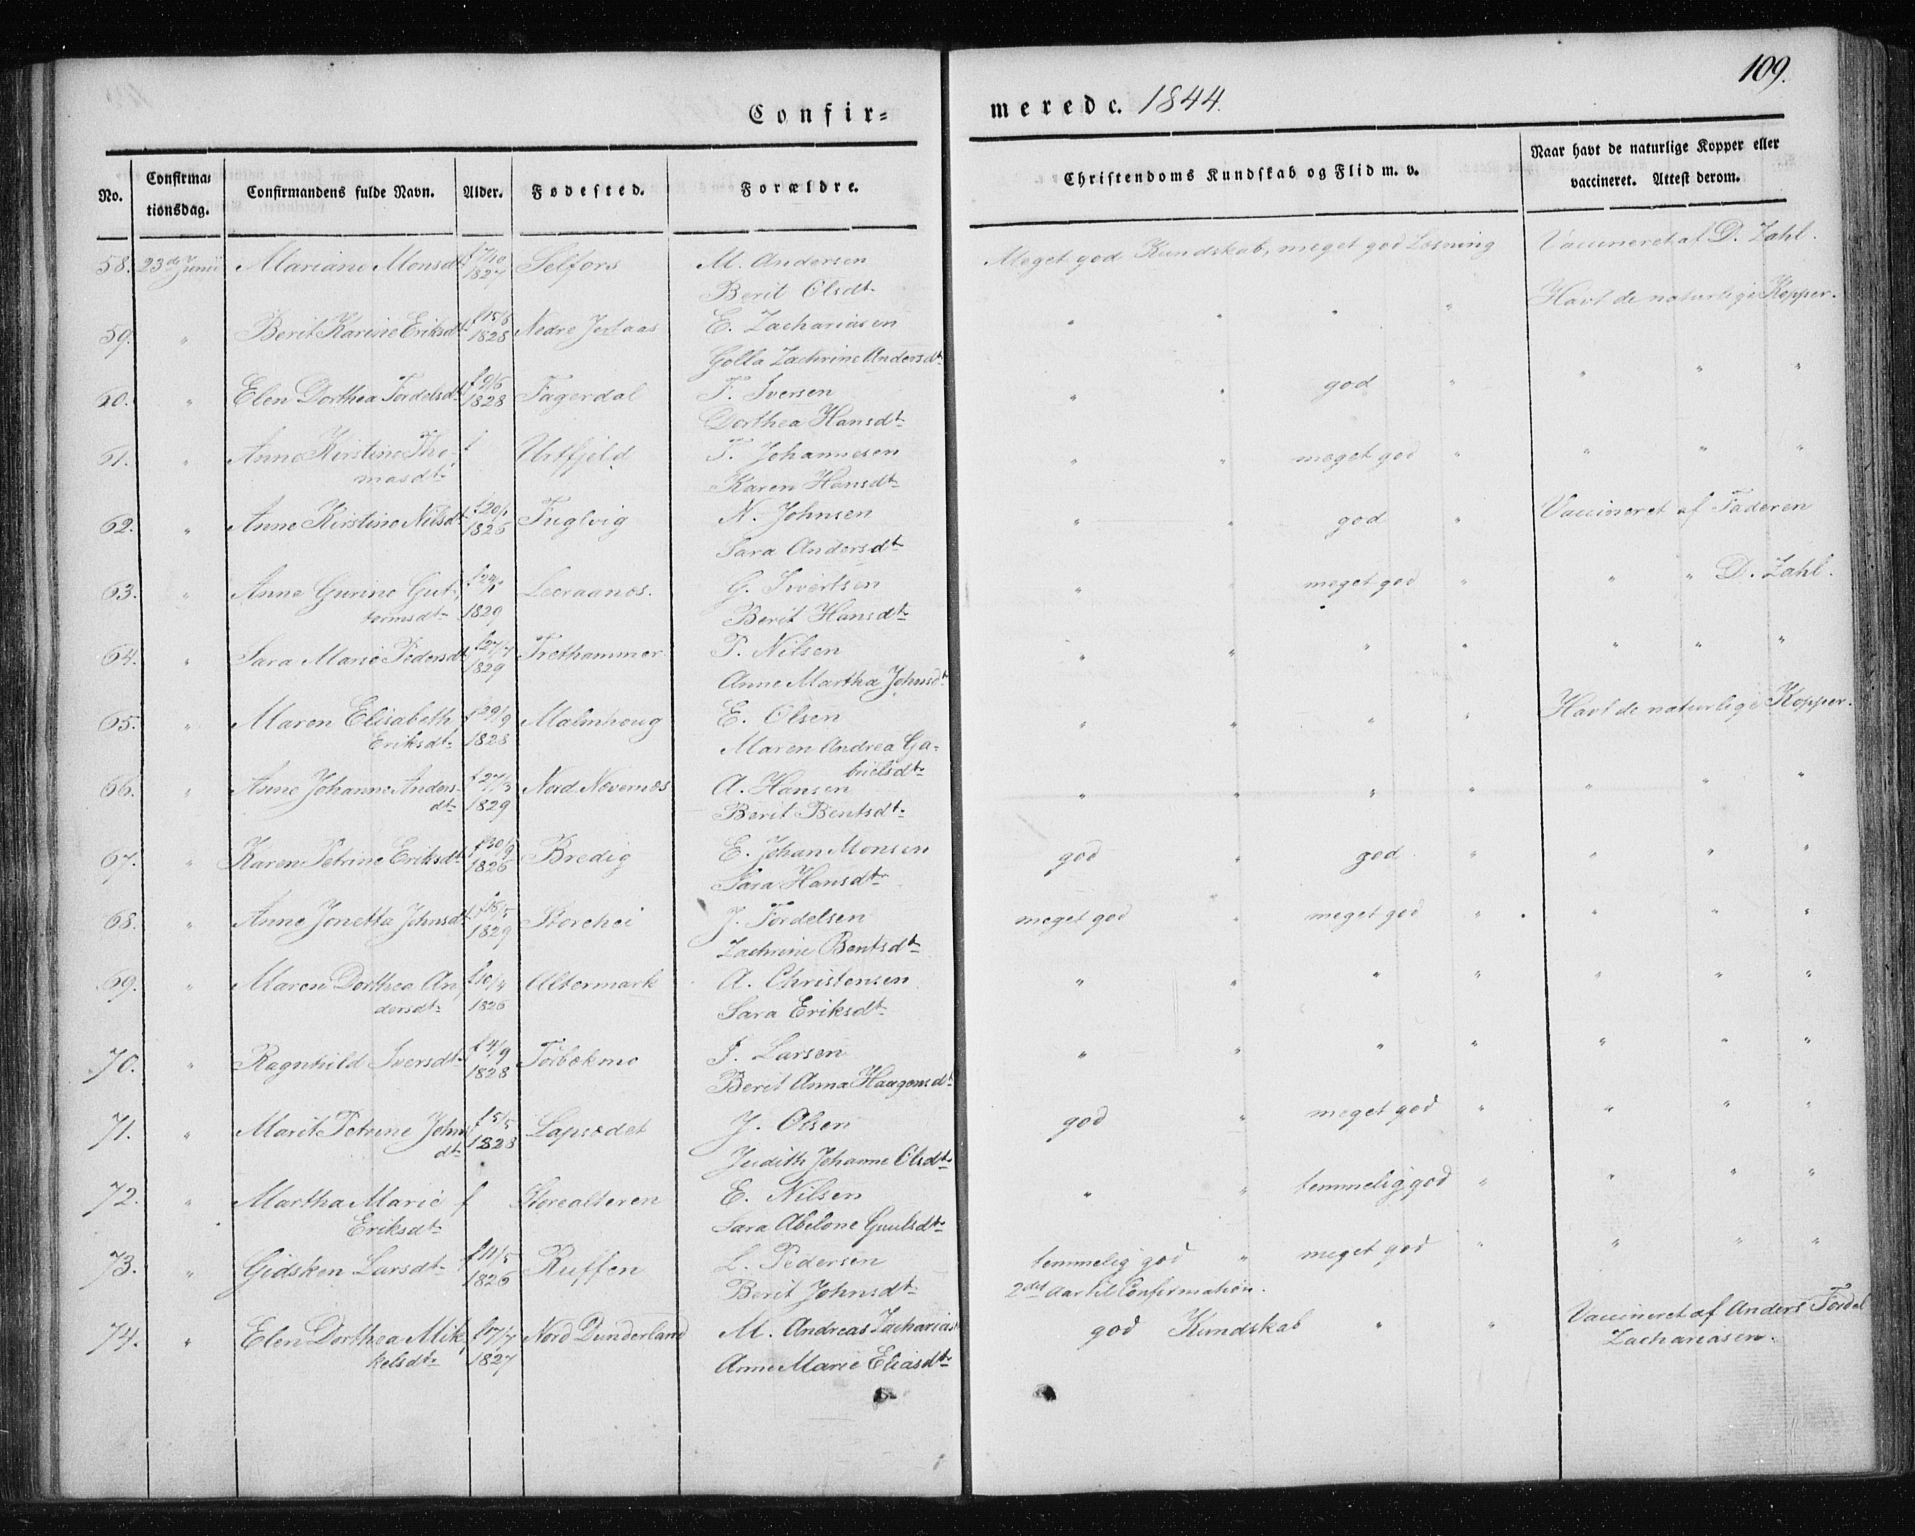 109.
Confir=
merede. 1844.
No.
Confirma:
tionsdag.
Confirmandens fulde Navn.
Alder.
Fødested.
Forældre.
Christendoms Kundskab og Flid m. v.
Naar havt de naturlige Kopper eller
vaccineret. Attest derom.
58. 23de Junii Mariane Monsdt. f 7/10 1827 Selfors M. Andersen Meget god Kundskab, meget god Læsning Vaccineret af D. Zahl.
Berit Olsdt.
59. " Berit Karine Eriksdt. 1828 Nedre E. Zachariasen " " " " Havt de naturlige Kopper.
Golla Zachrine Andersdt.
60. " Elen Dorthea Tordelsdt. 1828 Fagerdal T. Iversen " " god " " " "
Dorthea Hansdt.
61. " Anne Kirstine Tho- f Urtfjeld T. Johannesen " " meget god " " " "
masdt. Karen Hansdt.
62. " Anne Kirstine Nilsdt. f 20/1 1826 Fuglvig N. Johnsen " " god " Vaccineret af Faderen
Sara Andersdt.
63. " Anne Gurine Gut- 1829 Leeraanes. G. Ivertsen " " meget god " " " D. Zahl.
tormsdt. Berit Hansdt.
64. " Sara Marie Pedersdt. f 27/7 1829 Trethammer P. Nilsen " " " " " " "
Anne Martha Johnsdt.
65. " Maren Elisabeth f 29/9 1828 Malmhoug E. Olsen " " " " Havt de naturlige Kopper.
Eriksdt. Maren Andrea Ga-
brielsdt.
66. " Anne Johanne Anders- f 27/3 1829 Nord Nævernæs A. Hansen " " " " " " "
dt. Berit Bentsdt.
67. " Karen Petrine Eriksdt. f 30/9 1826 Bredig E. Johan Monsen god " god " " " "
Sara Hansdt.
68. " Anne Jonetta Johnsdt. 1829 Storehei J. Tordelsen meget god " meget god " " " "
Zachrine Bentsdt.
69. " Maren Dorthea An- f 10/4 1826 Altermark A. Christensen " " " " " " "
dersdt. Sara Eriksdt.
70. " Ragnhild Iversdt. f 4/9 1828 Torbekmo I. Larsen " " " " " " "
Berit Anna Haagensdt.
71. " Marit Petrine John- f 5/5 1828 Lapsødet J. Olsen god " meget god " " " "
dt. Judith Johanne Olsdt.
72. " Martha Marie f Storealteren E. Nilsen " " temmelig god " " " "
Eriksdt. Sara Abelone
73. " Gidsken Larsdt. f 11/5 1826 Ruffen L. Pedersen temmelig god " meget god " " " "
Berit Johnsdt. 2det Aar til Confirmation.
74. " Elen Dorthea Mik- f 17/7 1827 Nord Dunderland M. Andreas Zacharias god Kundskab " " Vaccineret af Anders Tordel
kelsdt. Anne Marie Eliasdt. Zachariasen.